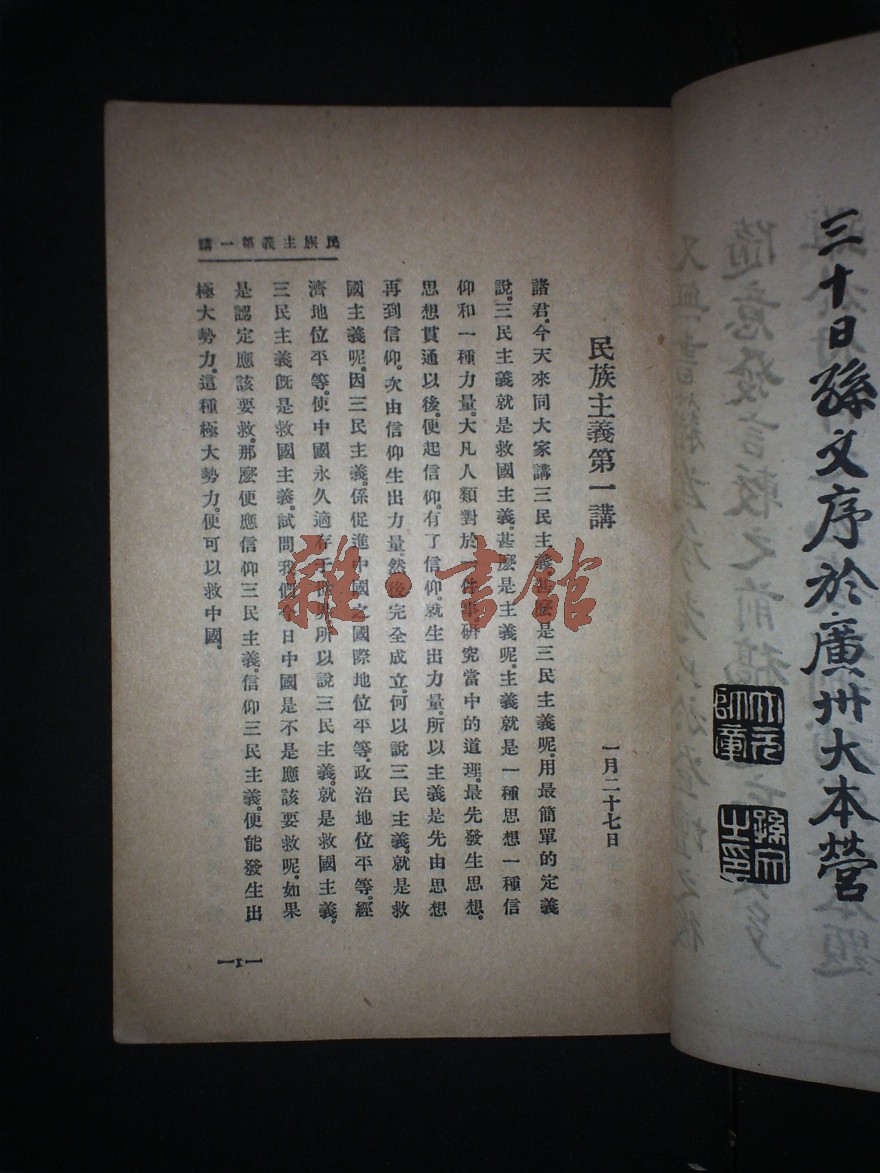 三十日孫文序於廣州大本營
大元帥章
孫文之印
民族主義第一講
民族主義第一講
一月二十七日
諸君、今天來同大家講三民主義甚麼是三民主義呢、用最簡單的定義
說、三民主義就是救國主義、甚麼是主義呢、主義就是一種思想一種信
仰和一種力量、大凡人類對於一件事、研究當中的道理、最先發生思想、
思想貫通以後、便起信仰、有了信仰、就生出力量、所以主義是先由思想
再到信仰、次由信仰生出力量、然後完全成立、何以說三民主義、就是救
國主義呢、因三民主義、係促進中國之國際地位平等、政治地位平等、經
濟地位平等、使中國永久適存于世界所以說三民主義、就是救國主義、
三民主義旣是救國主義、試問我們今日中國是不是應該要救呢、如果
是認定應該要救、那麼便應信仰三民主義、信仰三民主義、便能發生出
極大勢力、這種極大勢力、便可以救中國、
—1—
雜·書館